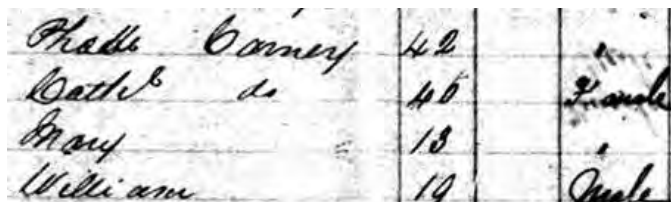 Thadd Carney 42 "
Cathe do 40 Female
Mary 13 "
William 19 Male